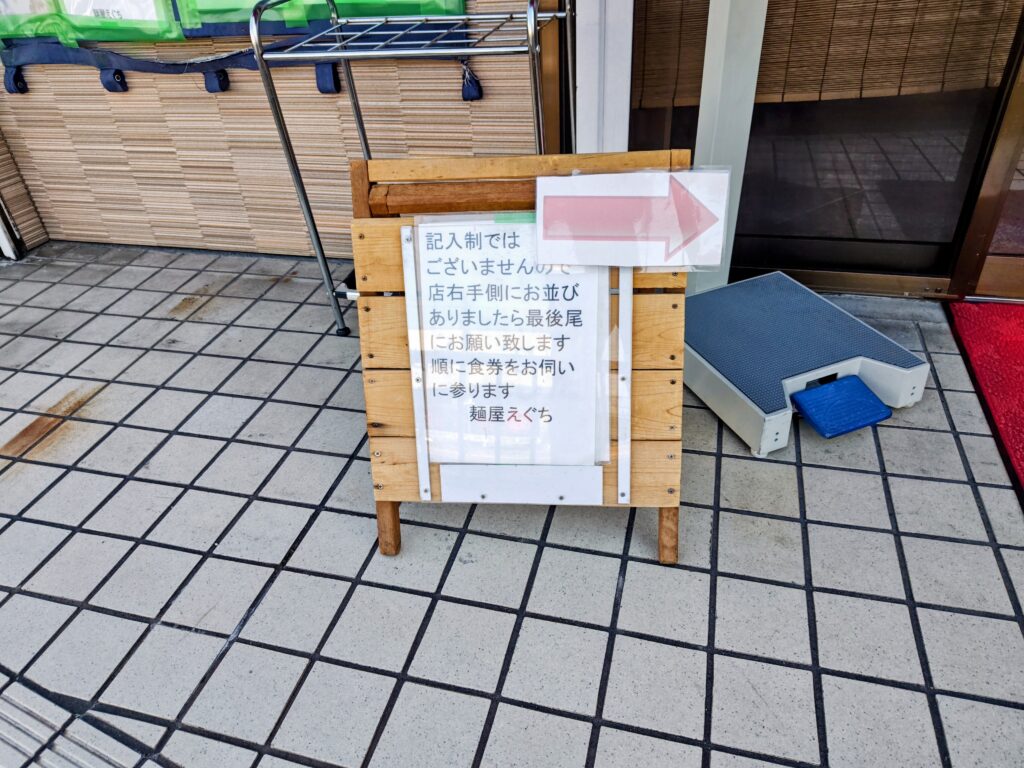 麺屋えぐち
記入制では
ございませんので
店右手側にお並び
ありましたら最後尾
にお願い致します
順に食券をお伺い
に参ります
麺屋えぐち